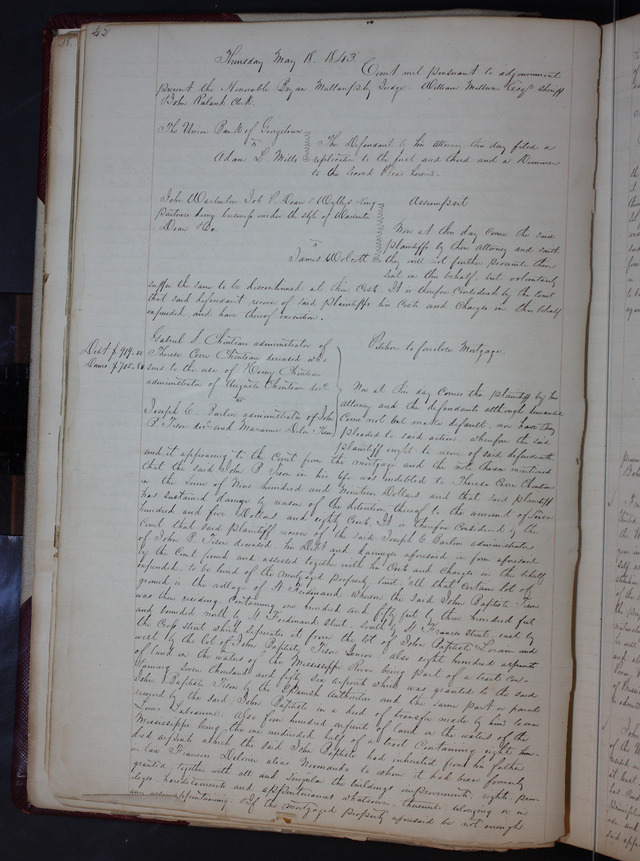 42
Thursday May 18. 1843.
Court met pursuant to adjournment
present the Honorable Bryan Mullanphy Judge William Milburn Esqr Sheriff
John Ruland Clk.
The Union Bank of Georgetown
vs
Adam L. Mills
The Defendant by his attorney this day filed a
replication to the first and third and a Demurrer
to the second Pleas herein.
John Warburton Job Dean &
partners doing business under the style of Warburton
Dean & Co.
vs
James Wolcott
Assumpsit
Now at this day come the said
plaintiffs by their Attorney and saith
they will not further prosecute their
suit in this behalf but voluntarily
suffer the same to be discontinued at their Cost. It is therefore Considered by the Court
that said defendant recover of said plaintiffs his Costs and Charges in this behalf
expended, and have thereof execution.
Debt $919.00
Dam $705.80
Gabriel S. Chouteau administrator of
Therese Cerre Chouteau deceased who
sues to the use of Henry Chouteau
administrator of Auguste Chouteau decd.
vs
Joseph C. Barlow administrator of John
P. Tison decd and Marianne
Petition to foreclose Mortgage.
Now at this day Comes the plaintiff by his
attorney and the defendants although
Come not but make default, nor have they
pleaded to said action. wherefore the said
plaintiff ought to recover of said defendants
and it appearing to the Court from the mortgage and the note therein mentioned
that the said John P. Tison in his life was indebted to Therese Cerre Chouteau
in the Sum of Nine hundred and Nineteen Dollars and that said plaintiff
has sustained damage by reason of the detention thereof to the amount of Seven
hundred and five Dollars and eighty Cents. It is therefore Considered by the
Court that said plaintiff recover of the said Joseph C. Barlow administrator
of John P. Tison deceased his Debt and damages aforesaid in form aforesaid
by the Court found and assessed together with his Costs and Charges in this behalf
expended, to be levied of the mortgaged property towit "all that certain lot of
ground in the village of St Ferdinand whereon the said John Baptiste Tison
was then residing Containing one hundred and fifty feet by three hundred feet
and bounded north by St Ferdinand Street South by St Francis Street, east by
the Cross street which seperates it from the lot of John Baptiste and
west by the lot of John Baptiste Tison Junior also eight hundred arpents
of land on the waters of the Mississippi River being part of a tract con-
taining seven thousand and fifty six arpents which was granted to the said
John Baptiste Tison by the Spanish Authorities and the same part or parcel
reserved by the said John Baptiste in a deed of transfer made by him to one
Louis Labeaume. Also four hundred arpents of land on the waters of the
Mississippi being the one undivided half of a tract Containing eight hun-
dred arpents which the said John Baptiste had inherited from his father
in law Francois Delorier alias Normando to whom it had been formerly
granted, together with all and Singular the buildings improvements, rights, privi-
leges, hereditaments and appurtenances whatsoever thereunto belonging or in
any wise appertaining. & If the mortgaged property aforesaid be not enough